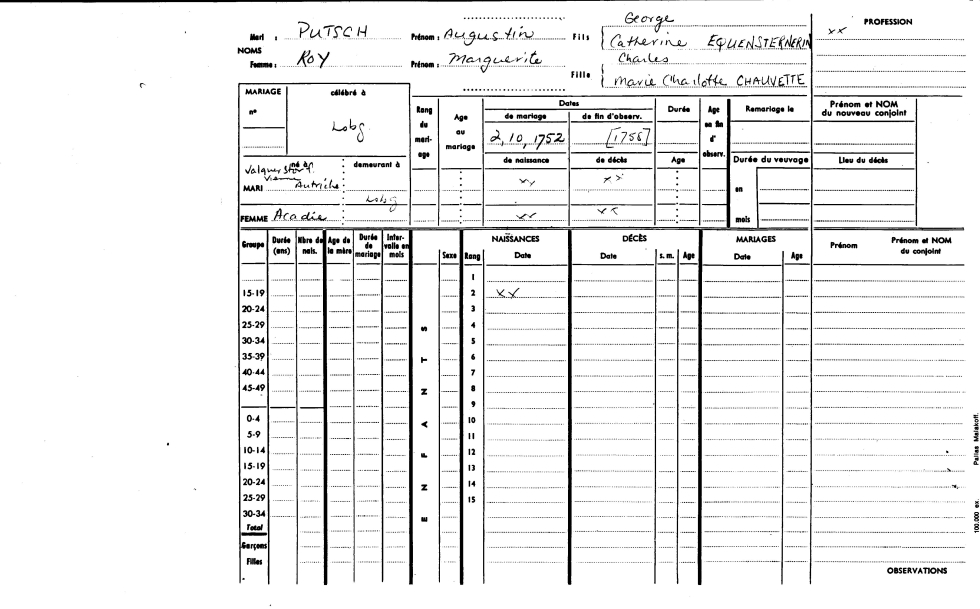 George
PROFESSION
Mari : PUTSCH Prénom : Augustin Fils Catherine EQUENSTERNERIN xx
NOMS
Femme : ROY Prénom : Marguerite Fille Charles
Marie Charlotte CHAUVETTE
MARIAGE célébré à
n° Lobg.
Rang du mariage
Age au mariage
Dates
de mariage de fin d'observ.
2, 10, 1752 [1758]
de naissance de décès
Durée
Age
Age en fin d'observ.
Remariage le
Durée du veuvage
en
mois
Prénom et NOM du nouveau conjoint
Lieu du décès
né à : demeurant à
Vienne
MARI Autriche : Lobg xx xx
FEMME Acadie : xx xx
Groupe Durée (ans) Nbre de nais. Age de la mère Durée de mariage Intervalle en mois
Sexe Rang
NAISSANCES Date
DÉCÈS Date s. m. Age
MARIAGES Date Age
Prénom Prénom et NOM du conjoint
1
15-19 2 xx
20-24 3
25-29 4
30-34 5
35-39 6
40-44 7
45-49 8
9
0-4 10
5-9 11
10-14 12
15-19 13
20-24 14
25-29 15
30-34
Total
Garçons
Filles
ENFANTS
OBSERVATIONS
100,000 ex. Pallas Malakoff.